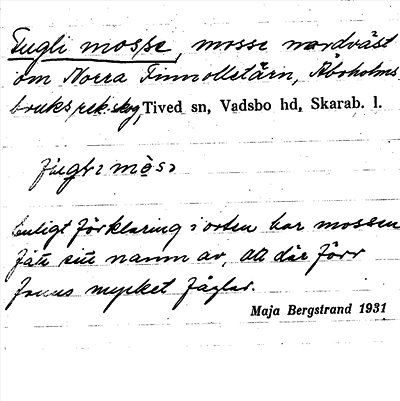 Fugli mosse, mosse nordväst
om Norra Finnolletärn, Åboholms
bruks rek. skog, Tived sn, Vadsbo hd, Skarab. l.
fɯgli mos:
Enligt förklaring i orten har mossen
fått sitt namn av, att där förr
funnos mycket fåglar.
Maja Bergstrand 1931